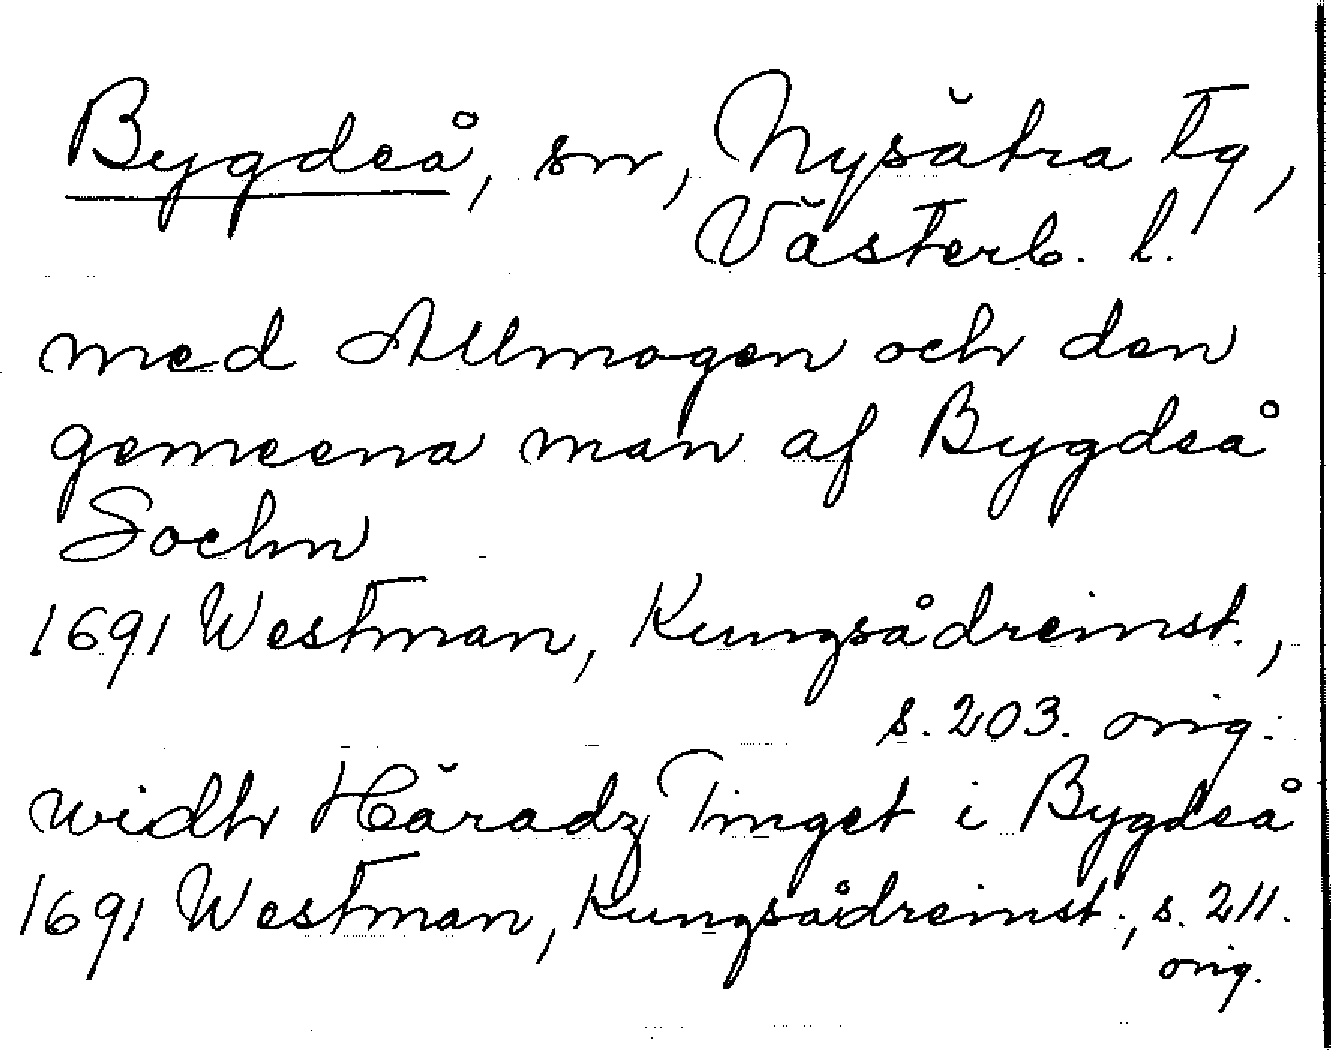 Bygdeå, sn, Nysätra tg,
Västerb. l.
med Allmogen och den
gemeena man af Bygdeå
Sochn
1691 Westman, Kungsådreinst.,
s. 203. orig.
widh Häradz Tinget i Bygdeå
1691 Westman, Kungsådreinst., s. 211.
orig.